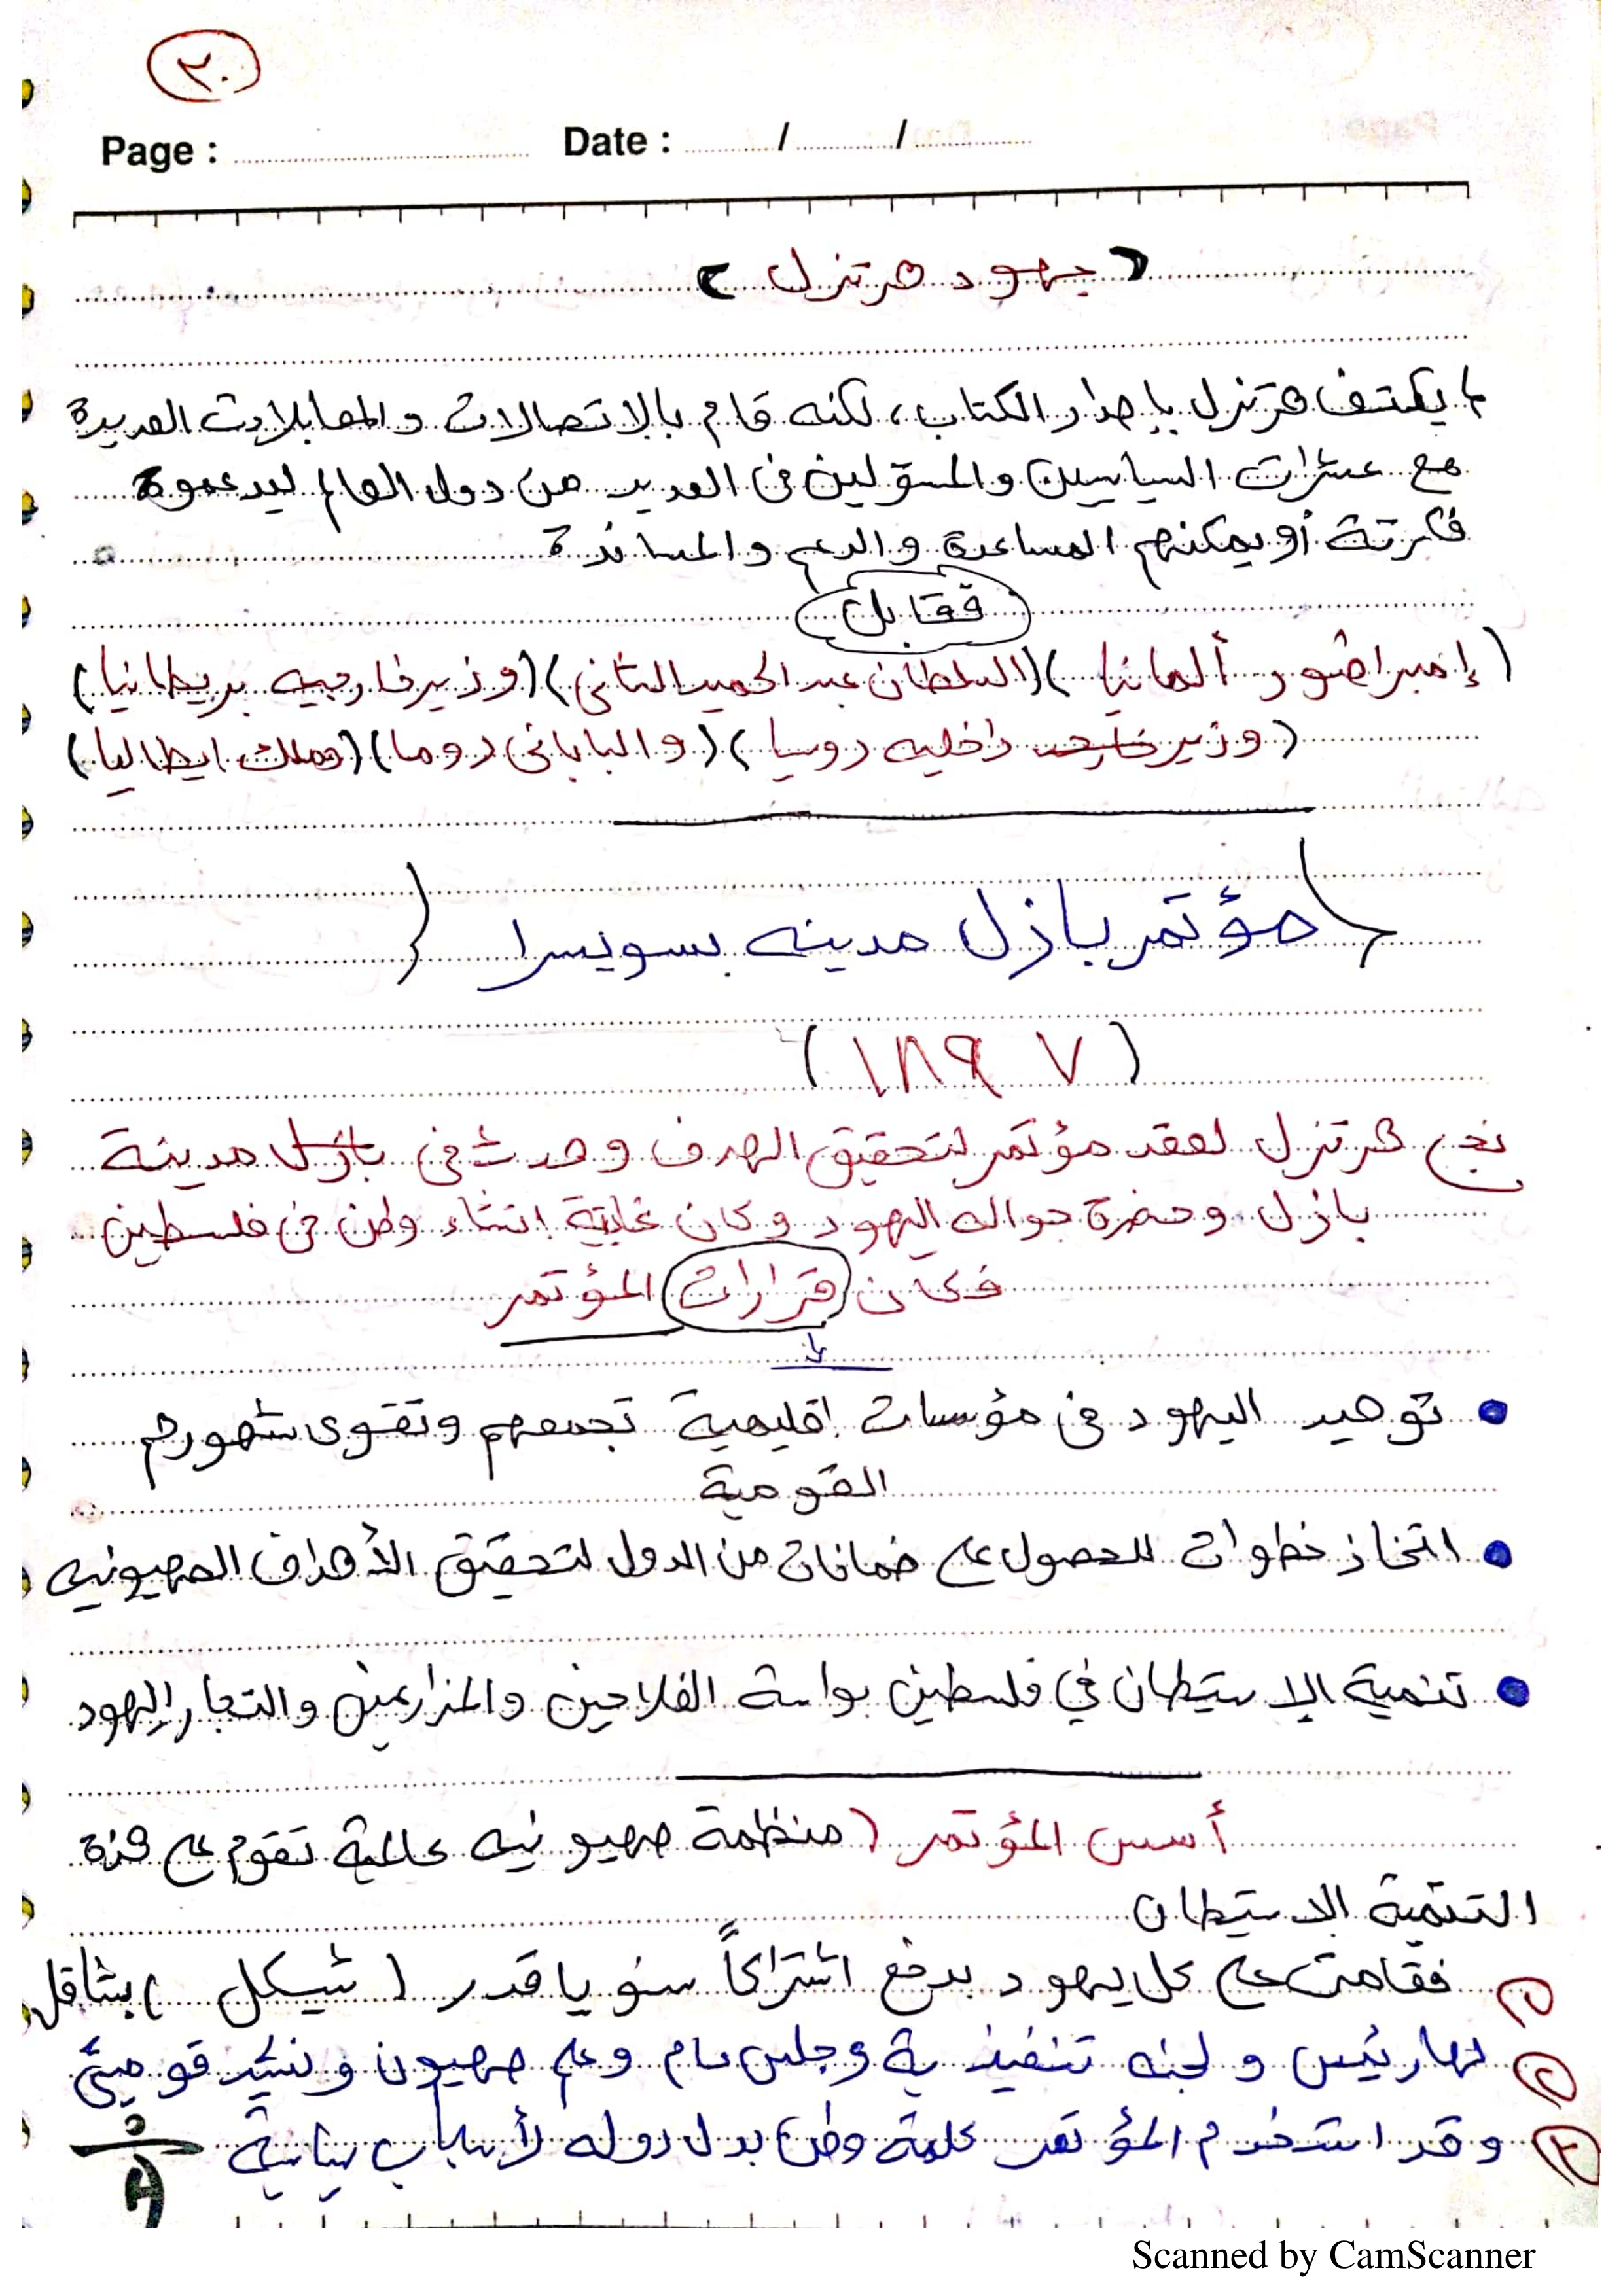 ٢٠
Page : Date : / /
( جهود هرتزل )
لم يكتف هرتزل بإصدار الكتاب، لكنه قام بالاتصالات والمقابلات العديدة
مع عشرات السياسيين والمسؤلين فى العديد من دول العالم ليدعموا
فكرتة أو يمكنهم المساعدة والدعم والمساندة
فقابل
(إمبراطور ألمانيا) (السلطان عبد الحميد الثانى) (وزير خارجيه بريطانيا)
(وزير داخليه روسيا) (والبابا فى روما) (وملك ايطاليا)
(مؤتمر بازل مدينه بسويسرا)
(١٨٩٧)
نجح هرتزل لعقد مؤتمر لتحقيق الهدف وحدث فى بازل مدينة
بازل وحضرة حواله اليهود وكان غايتة إنشاء وطن فى فلسطين
فكان قرارات المؤتمر
• توحيد اليهود فى مؤسسات إقليمية تجمعهم وتقوى شعورهم
القومية
• اتخاذ خطوات للحصول على ضمانات من الدول لتحقيق الأهداف الصهيونيه
• تنمية الإستيطان في فلسطين بواسة الفلاحين والمزارعين والتجار اليهود
أسس المؤتمر (منظمة صهيونيه عالمية تقوم على
التنمية الاستيطان
١ فقامت على كل يهود بدفع اشتراكاً سنويا قدر (شيكل) بثاقل
٢ لها رئيس ولجنه تنفيذية ومجلس عام وعلم صهيون ونشيد قومى
٣ وقد استخدم المؤتمر كلمة وطن بدل دوله لأسباب سياسية
Scanned by CamScanner